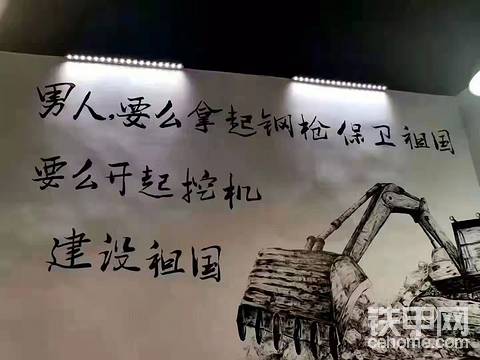 男人,要么拿起钢枪保卫祖国
要么开起挖机
建设祖国
铁甲网
cehome.com